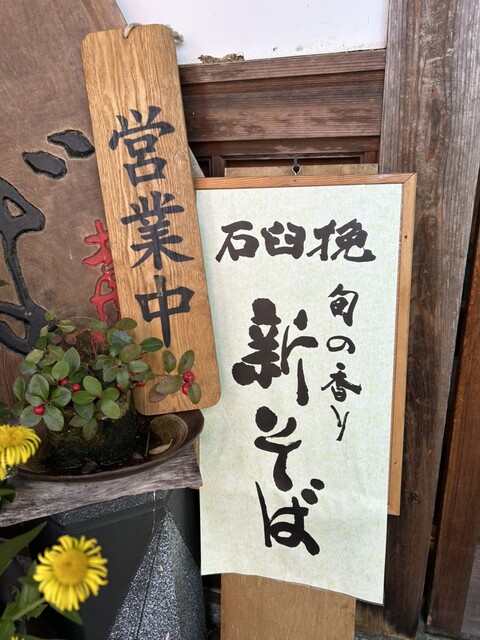 営業中
石臼挽
旬の香り
新そば